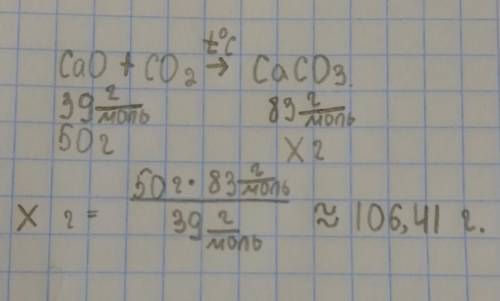 t°C
CaO + CO₂ → CaCO₃.
39 г/моль 83 г/моль
50г X г
X г = 50г · 83 г/моль / 39 г/моль ≈ 106,41 г.